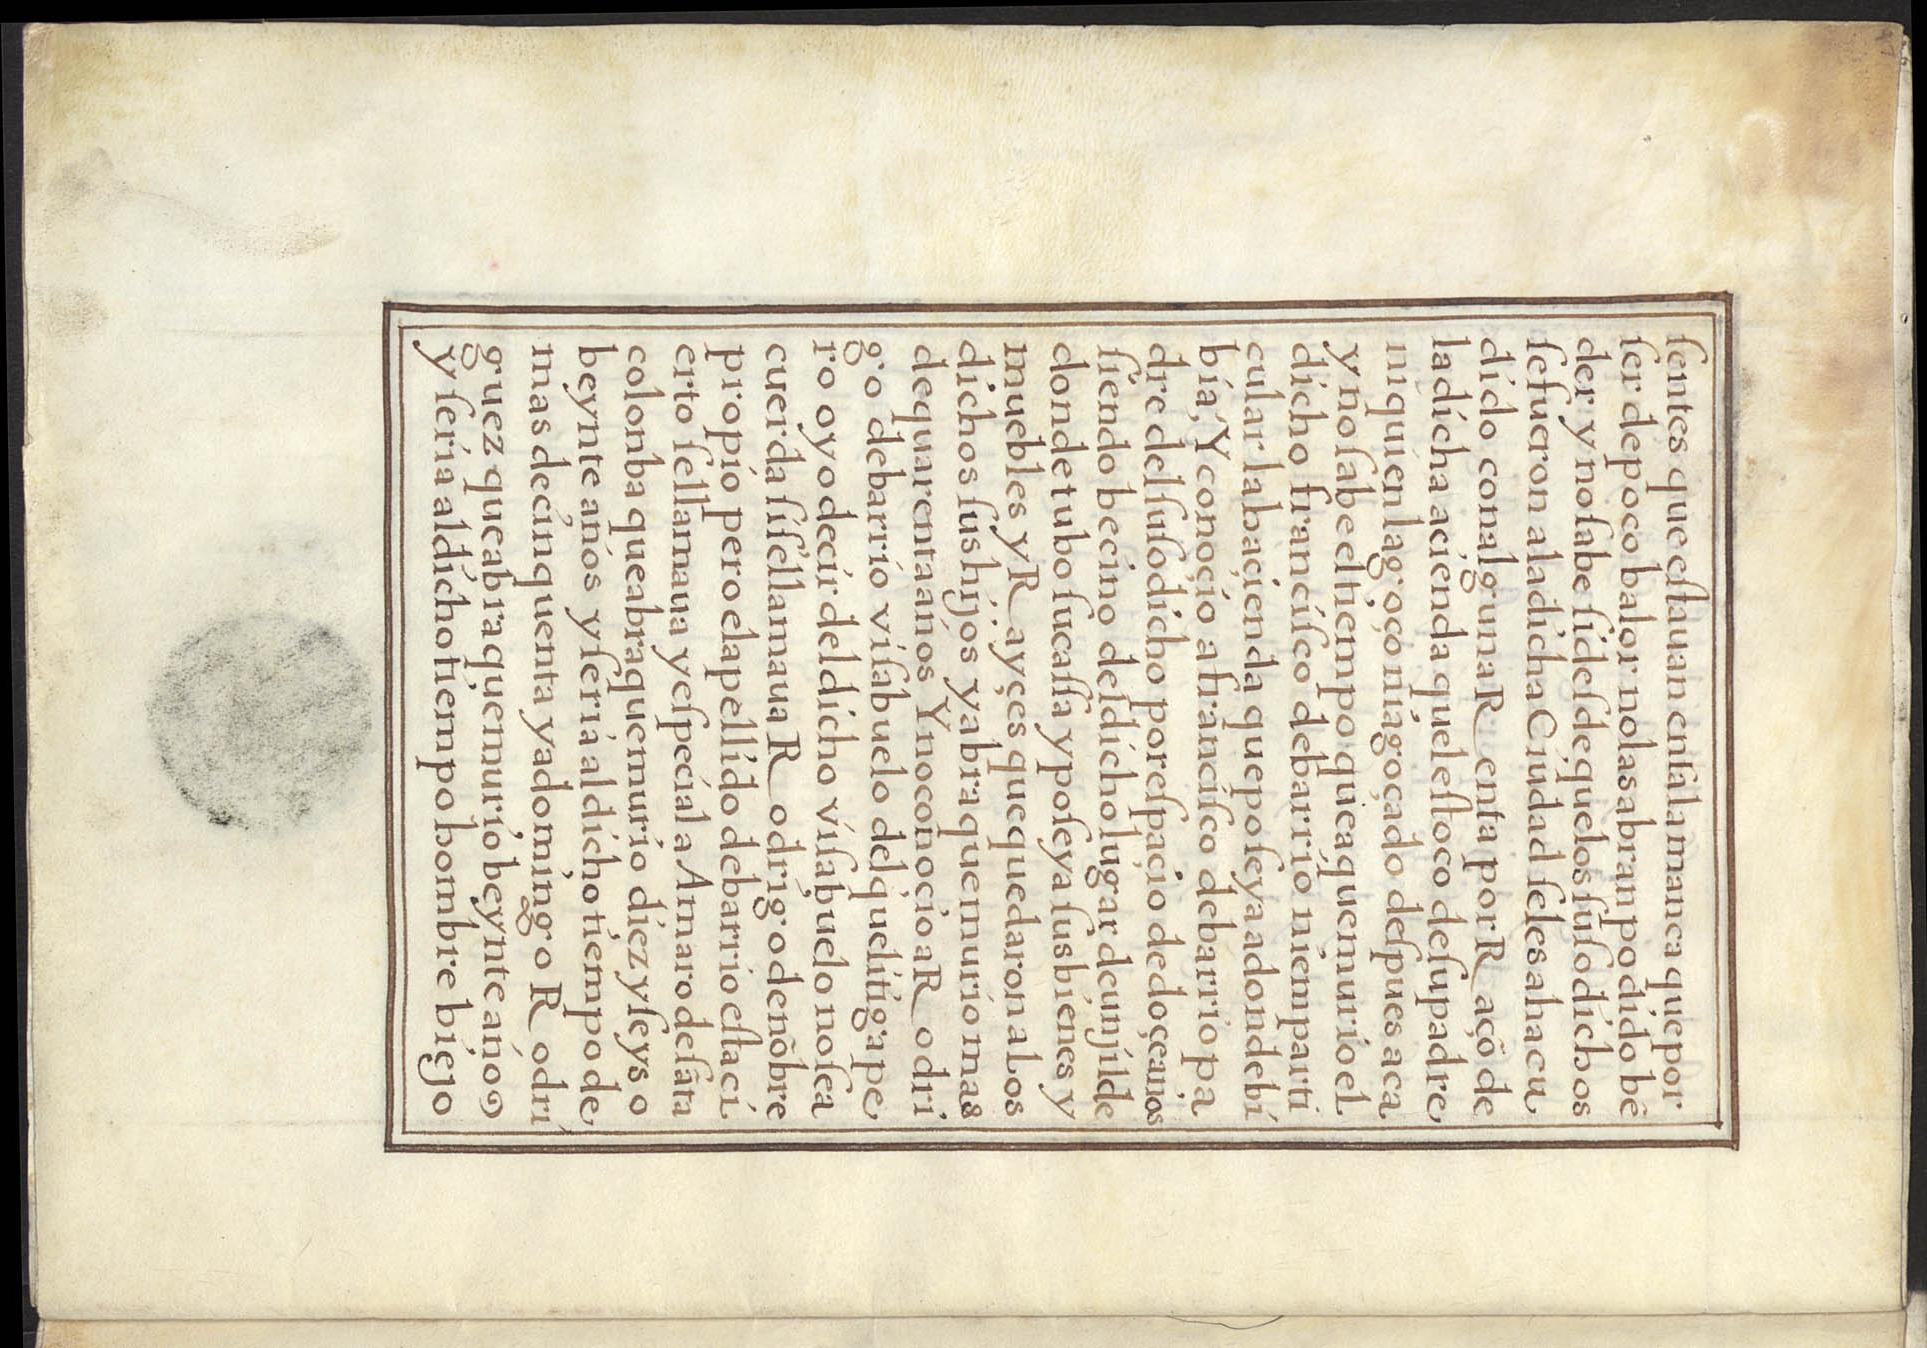 ſentes que eſtauan enſalamanca que por
ſer de poco balor nolas abran podido bē
der y noſabe ſi deſde quelos ſuſo dichos
ſefueron aladicha Ciudad ſeles aha cu
dido con alguna Renta por Raçō de
ladicha acienda quel eſtoco deſupadre
ni quien lagoço niagoçado deſpues aca
y no ſabe el tiempo que a quemurio el
dicho franciſco debarrio niemparti
cular labaçienda que poſeya adondebi
bia, Y conocio afranciſco debarrio pa
dre del ſuſodicho por eſpaçio dedoçeanos
ſiendo becino deldicholugar decunjilde
donde tubo ſucaſſa y poſeya ſus bienes y
muebles y Rayçes que quedaron aLos
dichos ſus hijos y abra quemurio mas
dequarenta años Y noconocio aRodri
go debarrio viſabuelo del quelitiga pe
ro oyo decir del dicho viſabuelo noſea
cuerda ſi ſellamaua Rodrigo denōbre
propio pero el apellido debarrio eſtaci
erto ſellamaua y eſpecial a Amaro deſāta
colonba que abra quemurio diez y ſeys o
beynte años y ſeria al dicho tiempo de
mas decinquenta y adomingo Rodri
guez que abra quemurio beynte años
y ſeria aldicho tiempo hombre biejo